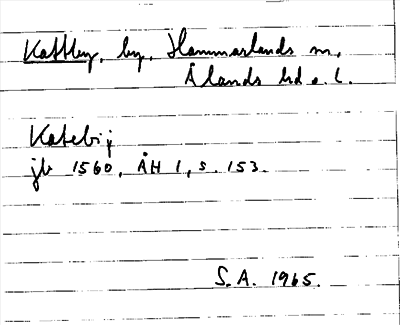 Kattby, by, Hammarlands sn,
Ålands hd o. l.
Katebij
jb 1560, ÅH 1, s. 153.
S.A. 1965.